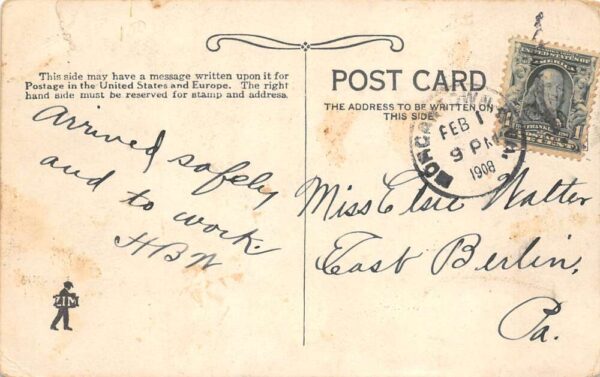 This side may have a message written upon it for
Postage in the United States and Europe. The right
hand side must be reserved for stamp and address.
POST CARD
THE ADDRESS TO BE WRITTEN ON
THIS SIDE
FEB 1
9 PM
1908
UNITED STATES OF
FRANKLIN
1
Arrived safely
and to work.
HBW
Miss Elsie Walter
East Berlin,
Pa.
ZIM